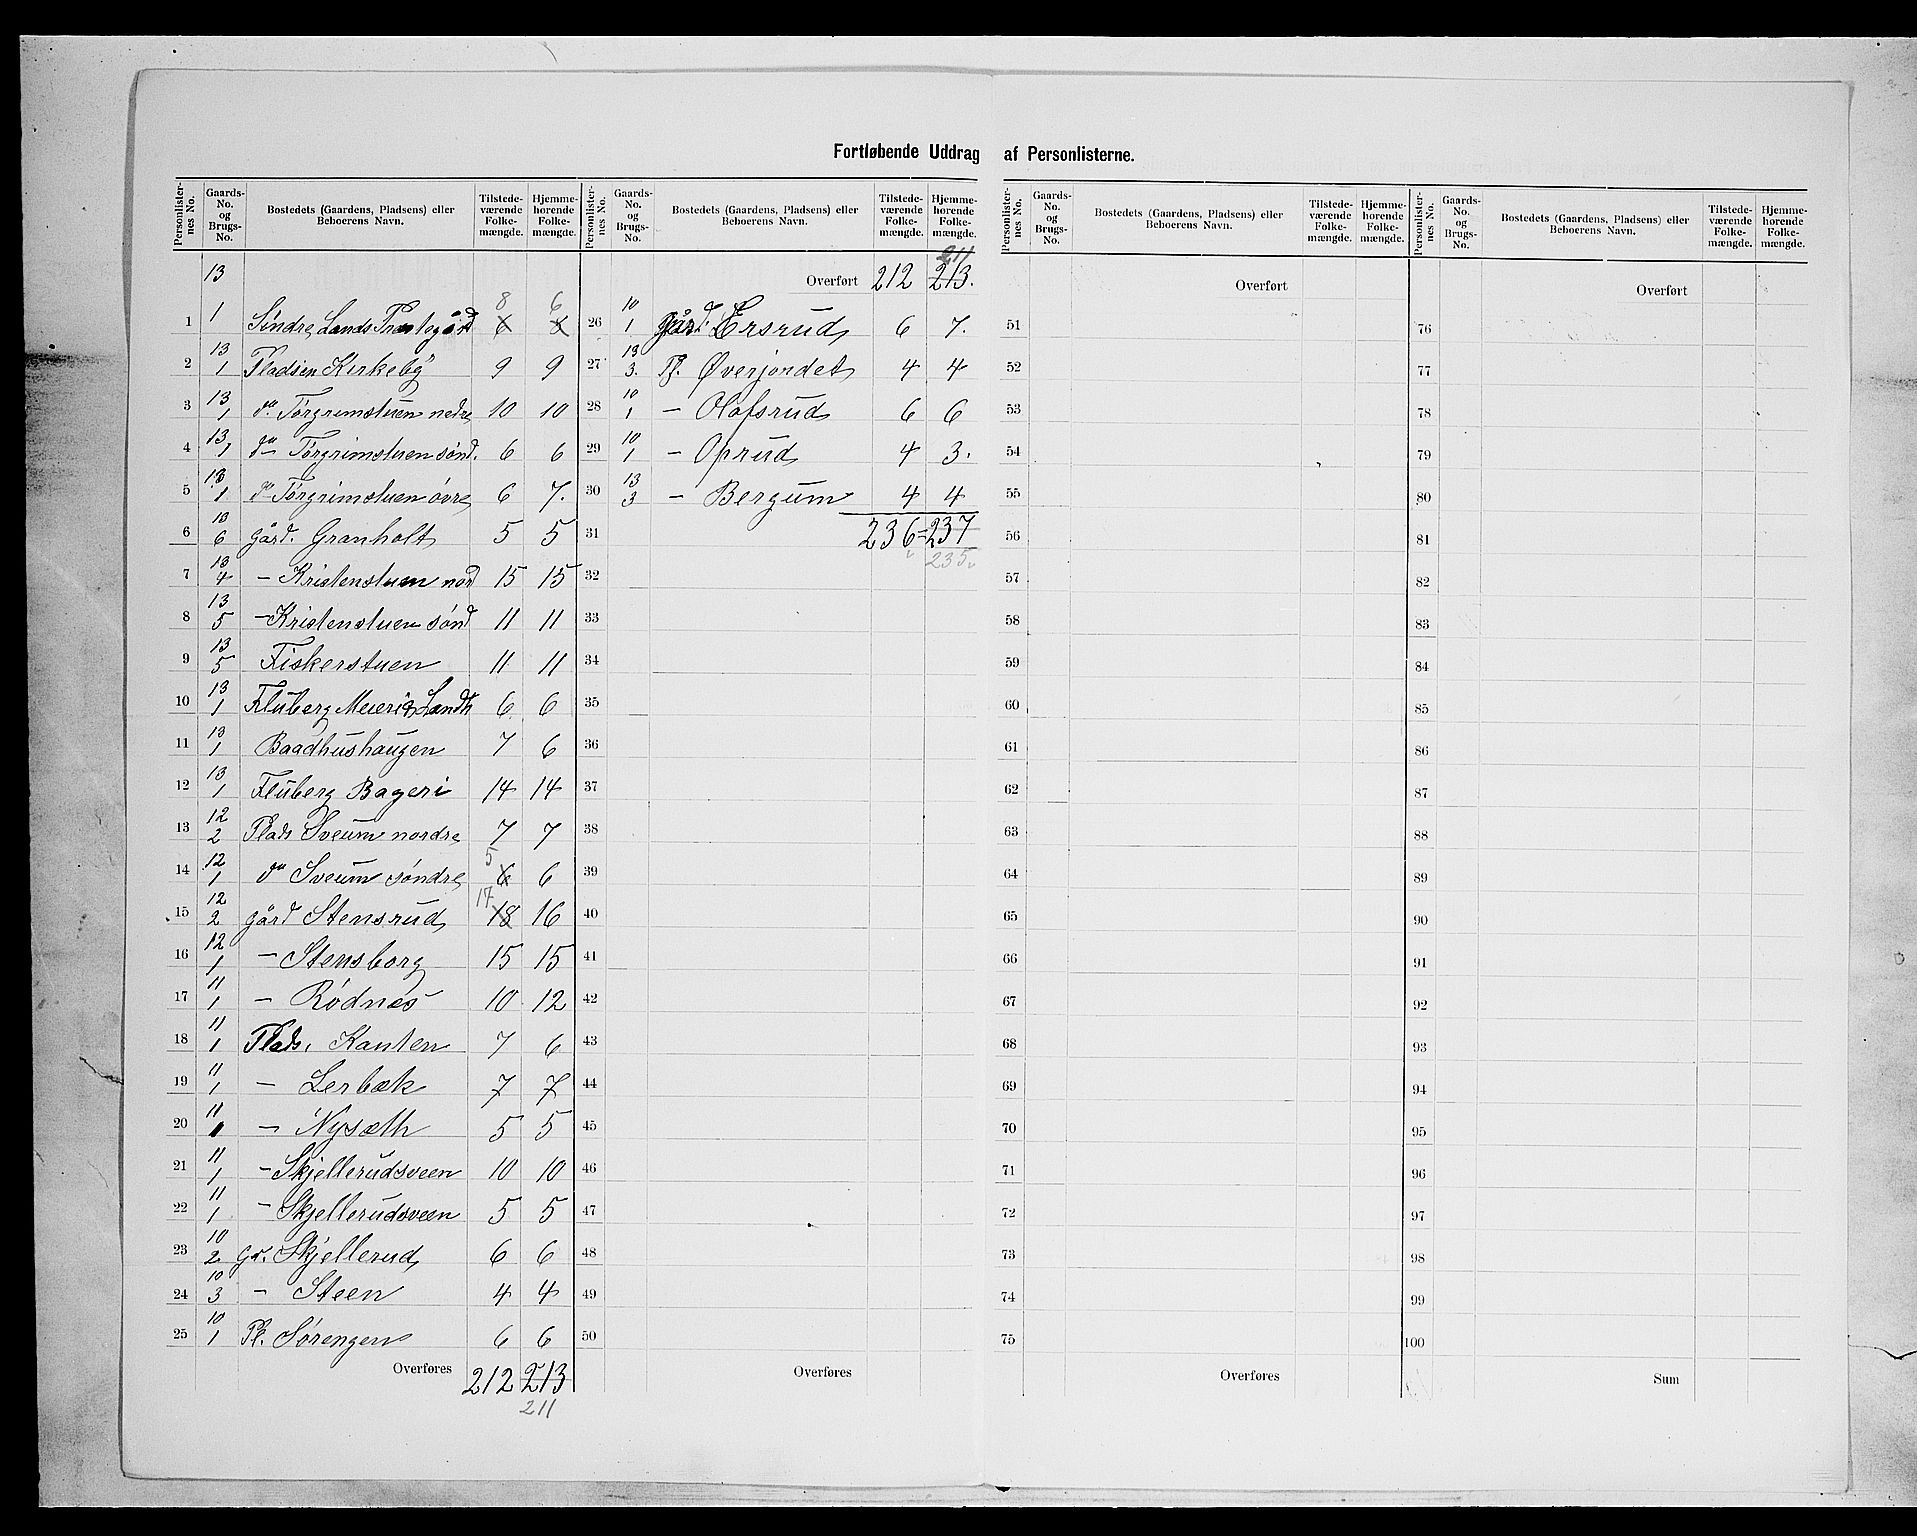 Fortløbende Uddrag af Personlisterne.
Personlister-nes No. Gaards-No. og Brugs-No. Bostedets (Gaardens, Pladsens) eller Beboerens Navn. Tilstede-værende Folke-mængde. Hjemme-hørende Folke-mængde.
13
1 1 Søndre Lands Præstegård 6 8 8 6
2 13/1 Pladsen Kirkeby 9 9
3 13/1 do. Torgrimstuen nedre 10 10
4 13/1 do Torgrimstuen sønd. 6 6
5 13/1 do Torgrimstuen övre 6 7.
6 13/6 Gård. Granholt 5 5
7 13/4 – Kristenstuen nord 15 15
8 13/5 – Kristenstuen sønd 11 11
9 13/5 Fiskerstuen 11 11
10 13/1 Fluberg Meieri & Landh 6 6
11 13/1 Baadhushaugen 7 6
12 13/1 Fluberg Bageri 14 14
13 12/2 Plads Sveum nordre 7 7
14 12/1 do Sveum søndre 6 5 6
15 12/2 Gård Stensrud 18 17 16
16 12/1 – Stensborg 15 15
17 11/1 – Rödnes 10 12
18 11/1 Plads. Kanten 7 6
19 11/1 – Lerbæk 7 7
20 11/1 – Nysæth 5 5
21 11/1 – Skjellerudsveen 10 10
22 11/1 – Skjellerudsveen 5 5
23 10/2 Gd. Skjellerud 6 6
24 10/3 – Steen 4 4
25 10/1 Pl. Sörengen 6 6
Overføres 212 213
211
Personlister-nes No. Gaards-No. og Brugs-No. Bostedets (Gaardens, Pladsens) eller Beboerens Navn. Tilstede-værende Folke-mængde. Hjemme-hørende Folke-mængde.
211
Overført 212 213.
26 10/1 Gård. Ersrud 6 7.
27 13/3. Pl. Øverjordet 4 4
28 10/1 – Olofsrud 6 6
29 10/1 – Oprud 4 3.
30 13/3 – Bergum 4 4
31 236 = 237
32 235
33
34
35
36
37
38
39
40
41
42
43
44
45
46
47
48
49
50
Overføres
Personlister-nes No. Gaards-No. og Brugs-No. Bostedets (Gaardens, Pladsens) eller Beboerens Navn. Tilstede-værende Folke-mængde. Hjemme-hørende Folke-mængde.
Overført
51
52
53
54
55
56
57
58
59
60
61
62
63
64
65
66
67
68
69
70
71
72
73
74
75
Overføres
Personlister-nes No. Gaards-No. og Brugs-No. Bostedets (Gaardens, Pladsens) eller Beboerens Navn. Tilstede-værende Folke-mængde. Hjemme-hørende Folke-mængde.
Overført
76
77
78
79
80
81
82
83
84
85
86
87
88
89
90
91
92
93
94
95
96
97
98
99
100
Sum